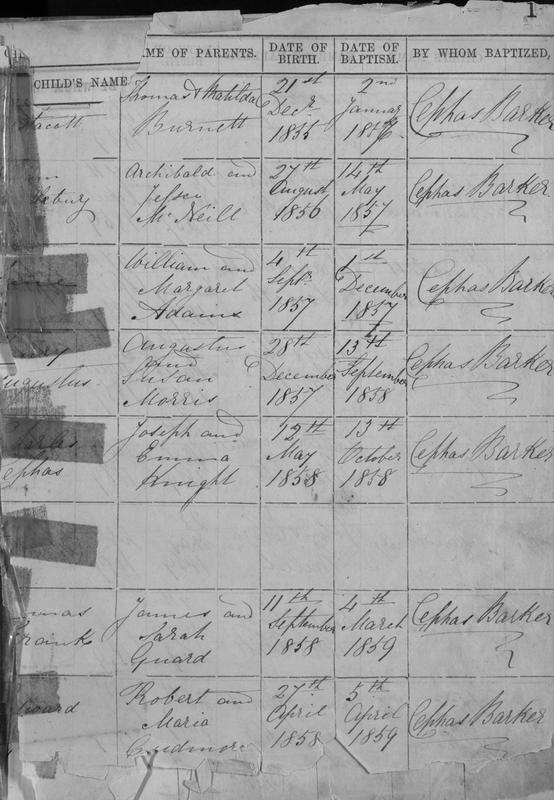 1
CHILD'S NAME
ME OF PARENTS.
DATE OF
BIRTH.
DATE OF
BAPTISM.
BY WHOM BAPTIZED,
Thomas & Matilda
Burnett
21st
Decr
1855
2nd
1856
Cephas Barker
Archibald and
McNeill
27th
August
1856
14th
May
1857
Cephas Barker
William and
Margaret
Adams
4th
Septr
1857
1st
December
1857
Cephas Barker
ugustus
Augustus
and
Susan
Morris
28th
December
1857
13th
September
1858
Cephas Barker
Charles
Cephas
Joseph and
Emma
Knight
12th
May
1858
13th
October
1858
Cephas Barker
omas
Frank
James and
Sarah
Guard
11th
September
1858
4th
March
1859
Cephas Barker
ward
Robert and
Maria
27th
April
1858
5th
April
1859
Cephas Barker